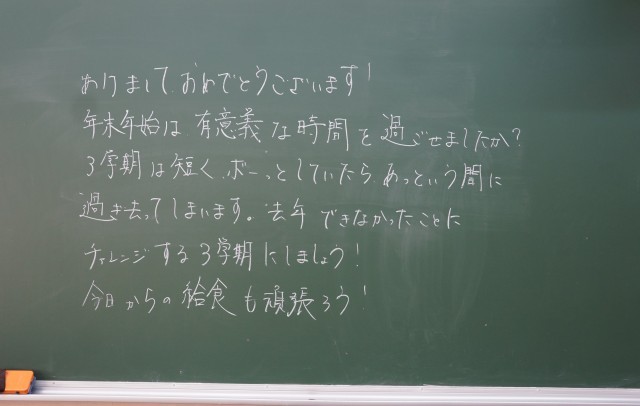 あけまして おめでとうございます!
年末年始は 有意義な時間を過ごせましたか?
3学期は短く、ボーっとしていたら、あっという間に
過ぎ去ってしまいます。去年できなかったことに
チャレンジする3学期にしましょう!
今日からの給食も頑張ろう!